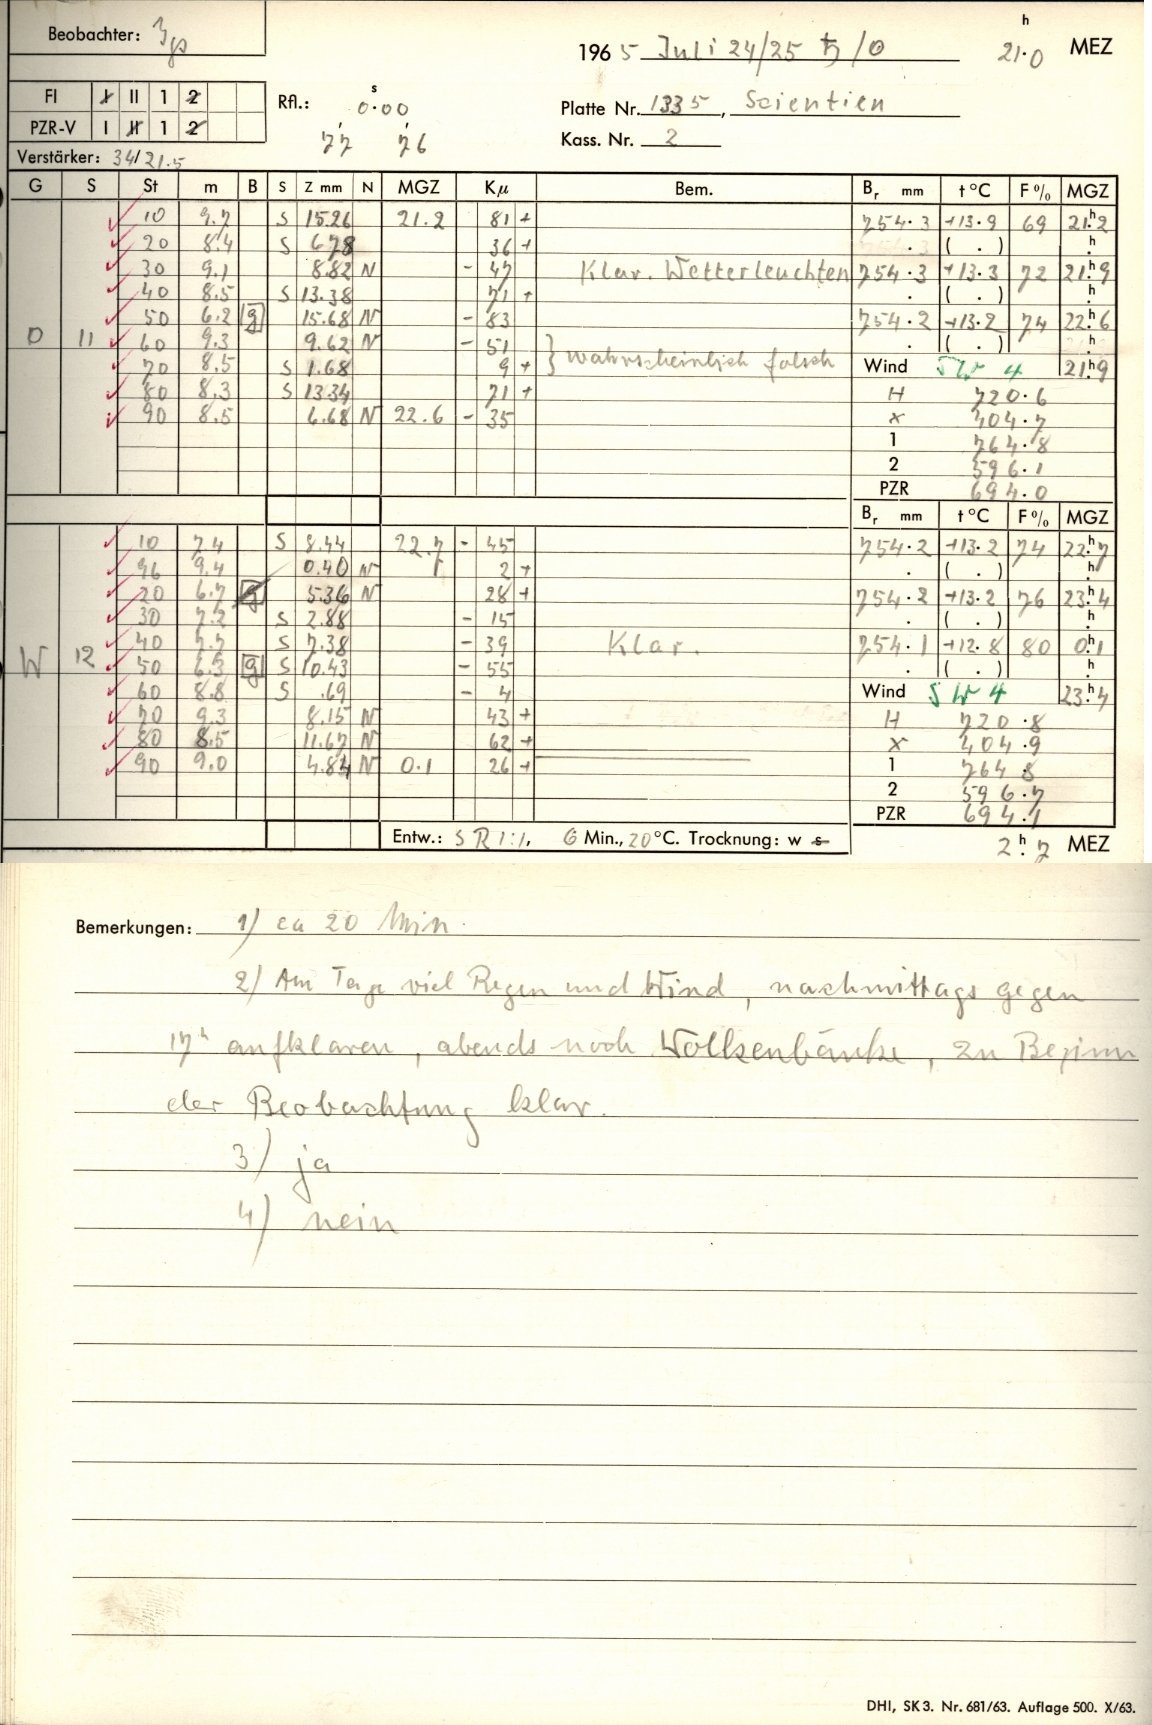 Beobachter:
h
1965 Juli 24/25 ♄/☉ 21.0 MEZ
FI I II 1 2
Rfl.: 0.00 s
Platte Nr. 1335, Scientien
PZR-V I II 1 2
77 76
Kass. Nr. 2
Verstärker: 34/21.5
G S St m B S Z mm N MGZ Kμ Bem. Br mm t °C F % MGZ
10 9.7 S 15.26 21.2 81 + 754.3 +13.9 69 21.h2
20 8.4 S 6.78 36 + . ( . ) h
30 9.1 8.82 N - 47 Klar. Wetterleuchten 754.3 +13.3 72 21.h9
40 8.5 S 13.38 71 + . ( . ) h
50 6.2 g 15.68 N - 83 754.2 +13.2 74 22.h6
O 11 60 9.3 9.62 N - 51 } wahrscheinlich falsch . ( . ) h
70 8.5 S 1.68 9 + Wind SW 4 21.h9
80 8.3 S 13.34 71 + H 720.6
90 8.5 6.68 N 22.6 - 35 x 404.7
1 764.8
2 596.1
PZR 694.0
Br mm t °C F % MGZ
10 7.4 S 8.44 22.7 - 45 754.2 +13.2 74 22.h7
96 9.4 0.40 N 2 + . ( . ) h
20 6.7 g 5.36 N 28 + 754.2 +13.2 76 23.h4
30 7.2 S 2.88 - 15 . ( . ) h
40 7.7 S 7.38 - 39 Klar. 754.1 +12.8 80 0.h1
W 12 50 6.3 g S 10.43 - 55 . ( . ) h
60 8.8 S .69 - 4 Wind SW 4 23.h4
70 9.3 8.15 N 43 + H 720.8
80 8.5 11.67 N 62 + x 404.9
90 9.0 4.84 N 0.1 26 + 1 764.8
2 596.7
PZR 694.1
Entw.: SR 1:1, 6 Min., 20 °C. Trocknung: w s 2.h7 MEZ
Bemerkungen: 1) ca 20 Min.
2) Am Tage viel Regen und Wind, nachmittags gegen
17h aufklaren, abends noch Wolkenbänke, zu Beginn
der Beobachtung klar.
3) ja
4) nein
DHI, SK 3. Nr. 681/63. Auflage 500. X/63.